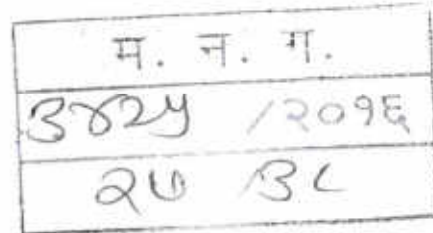 म. न. ग.
३४२५ /२०१६
२७ /३८